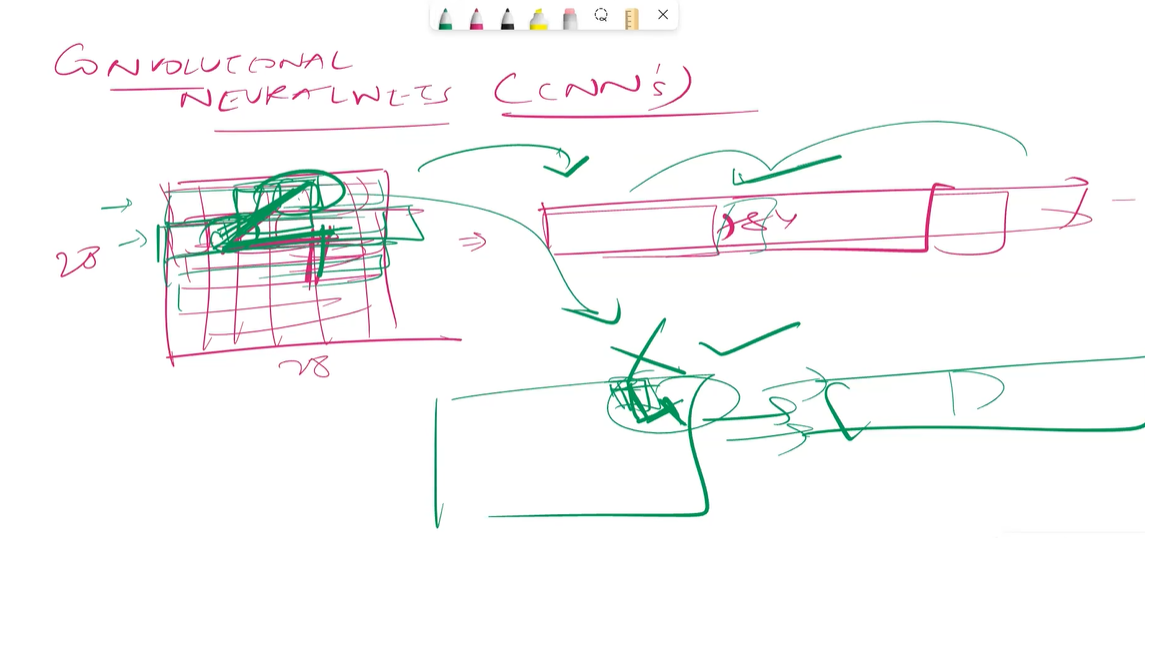 CONVOLUTIONAL
NEURAL NETS (CNN's)
28
784
28